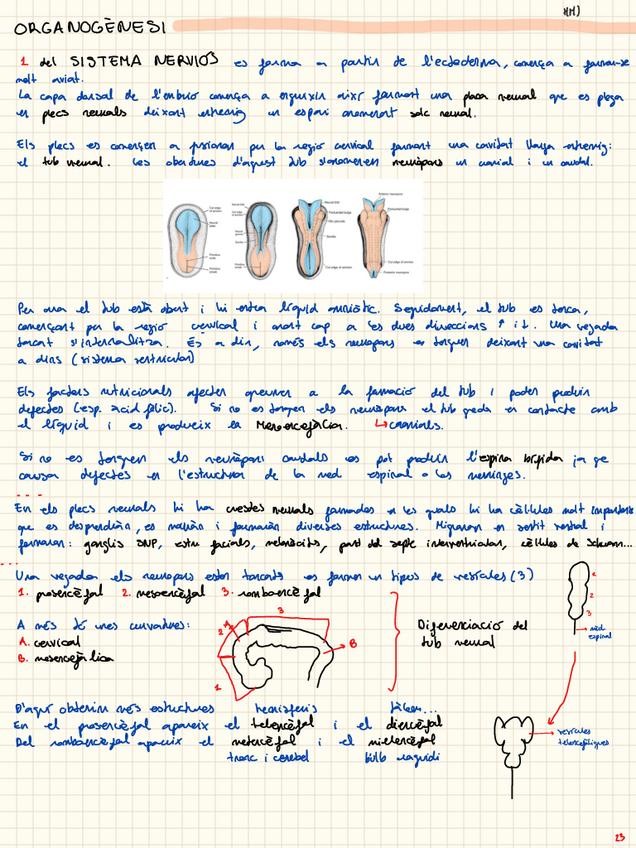 ORGANOGÈNESI
1 del SISTEMA NERVIÓS es forma a partir de l'ectoderma, comença a formar-se
molt aviat.
La capa dorsal de l'embrió comença a engruixir així formant una placa neural que es plega
en plecs neurals deixant entremig un espai anomenat solc neural.
Els plecs es comencen a fusionar per la regió cervical formant una cavitat llarga entremig:
el tub neural. Les obertures d'aquest tub s'anomenen neuròpors un cranial i un caudal.
Per ara el tub està obert i hi entra líquid amniòtic. Seguidament, el tub es tanca,
començant per la regió cervical i anant cap a les dues direccions ↑ i ↓. Una vegada
tancat s'internalitza. És a dir, només els neuropors es tanquen deixant una cavitat
a dins (sistema ventricular)
Els factors nutricionals afecten a la formació del tub i poden produir
defectes (esp. àcid fòlic). Si no es tanquen els neuropors el tub queda en contacte amb
el líquid i es produeix la ↳ cranials.
Si no es tanquen els neuròpors caudals es pot produir l'espina bífida ja que
causa defectes en l'estructura de la med. espinal o les meninges.
En els plecs neurals hi ha crestes neurals formades en les quals hi ha cèl·lules molt importants
que es desprendran, es mouran i formaran diverses estructures. Migraran en sentit ventral i
formaran: ganglis SNP, estru facials, melanòcits, part del septe interventricular, cèl·lules de Schwann...
Una vegada els neuropors estan tancats es formen un tipus de vesícules (3)
1. prosencèfal 2. mesencèfal 3. rombencèfal
A més té unes curvatures:
A. cervical
B. mesencefàlica
1
2
A
3
B
Diferenciació del
tub neural
1
2
3
med
espinal
D'aquí obtenim més estructures hemisferis tàlem...
En el prosencèfal apareix el telencèfal i el diencèfal
Del rombencèfal apareix el metencèfal i el mielencèfal
tronc i cerebel bulb raquidi
vesícules
telencefàliques
23